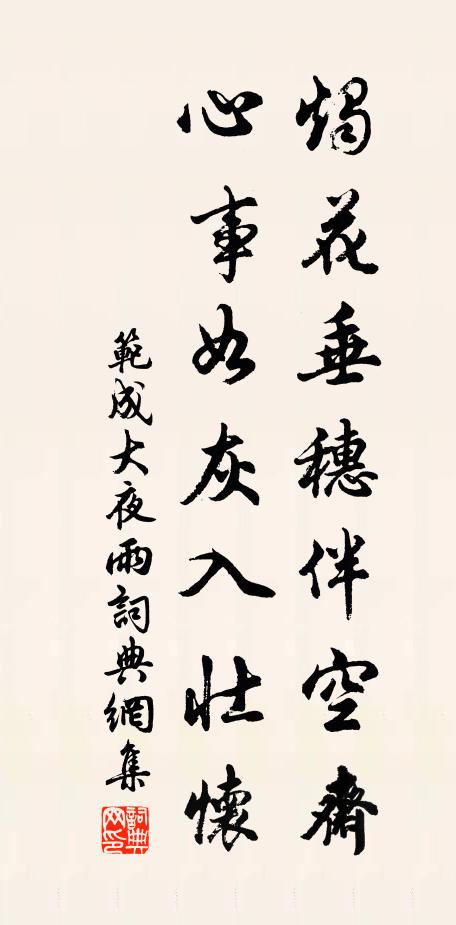 燭花垂穗伴空齋
心事如灰入壯懷
範成大夜雨詞典網集
詞典
网印